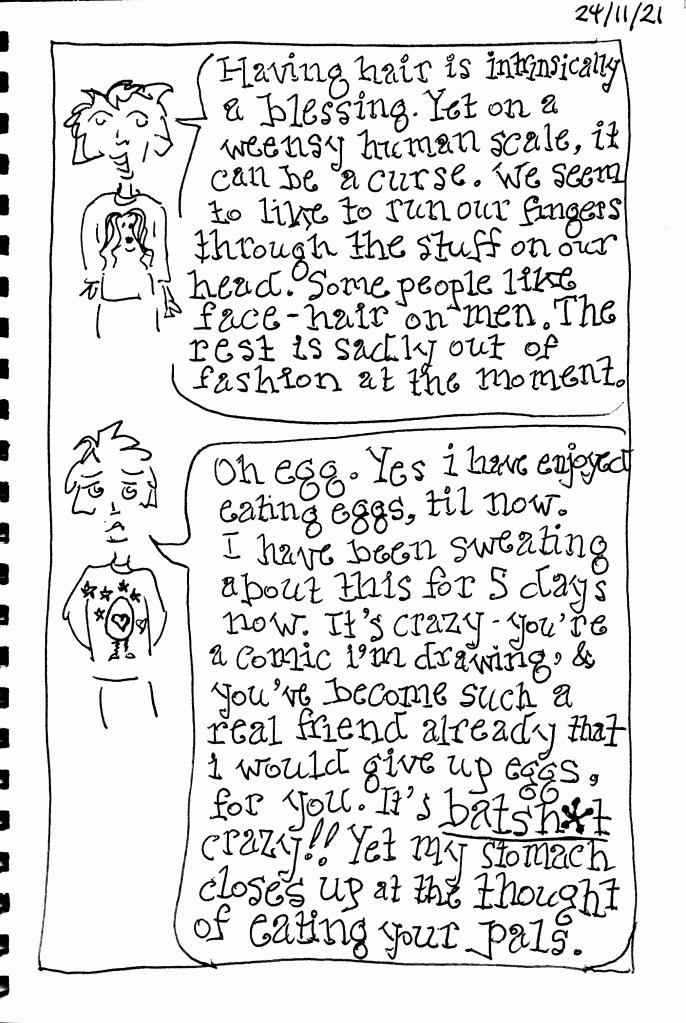 24/11/21
Having hair is intrinsically
a blessing. Yet on a
weensy human scale, it
can be a curse. We seem
to like to run our fingers
through the stuff on our
head. Some people like
face-hair on men. The
rest is sadly out of
fashion at the moment.
Oh egg. Yes i have enjoyed
eating eggs, til now.
I have been sweating
about this for 5 days
now. It's crazy - you're
a comic i'm drawing, &
you've become such a
real friend already that
i would give up eggs,
for you. It's batsh*t
crazy!! Yet my stomach
closes up at the thought
of eating your pals.